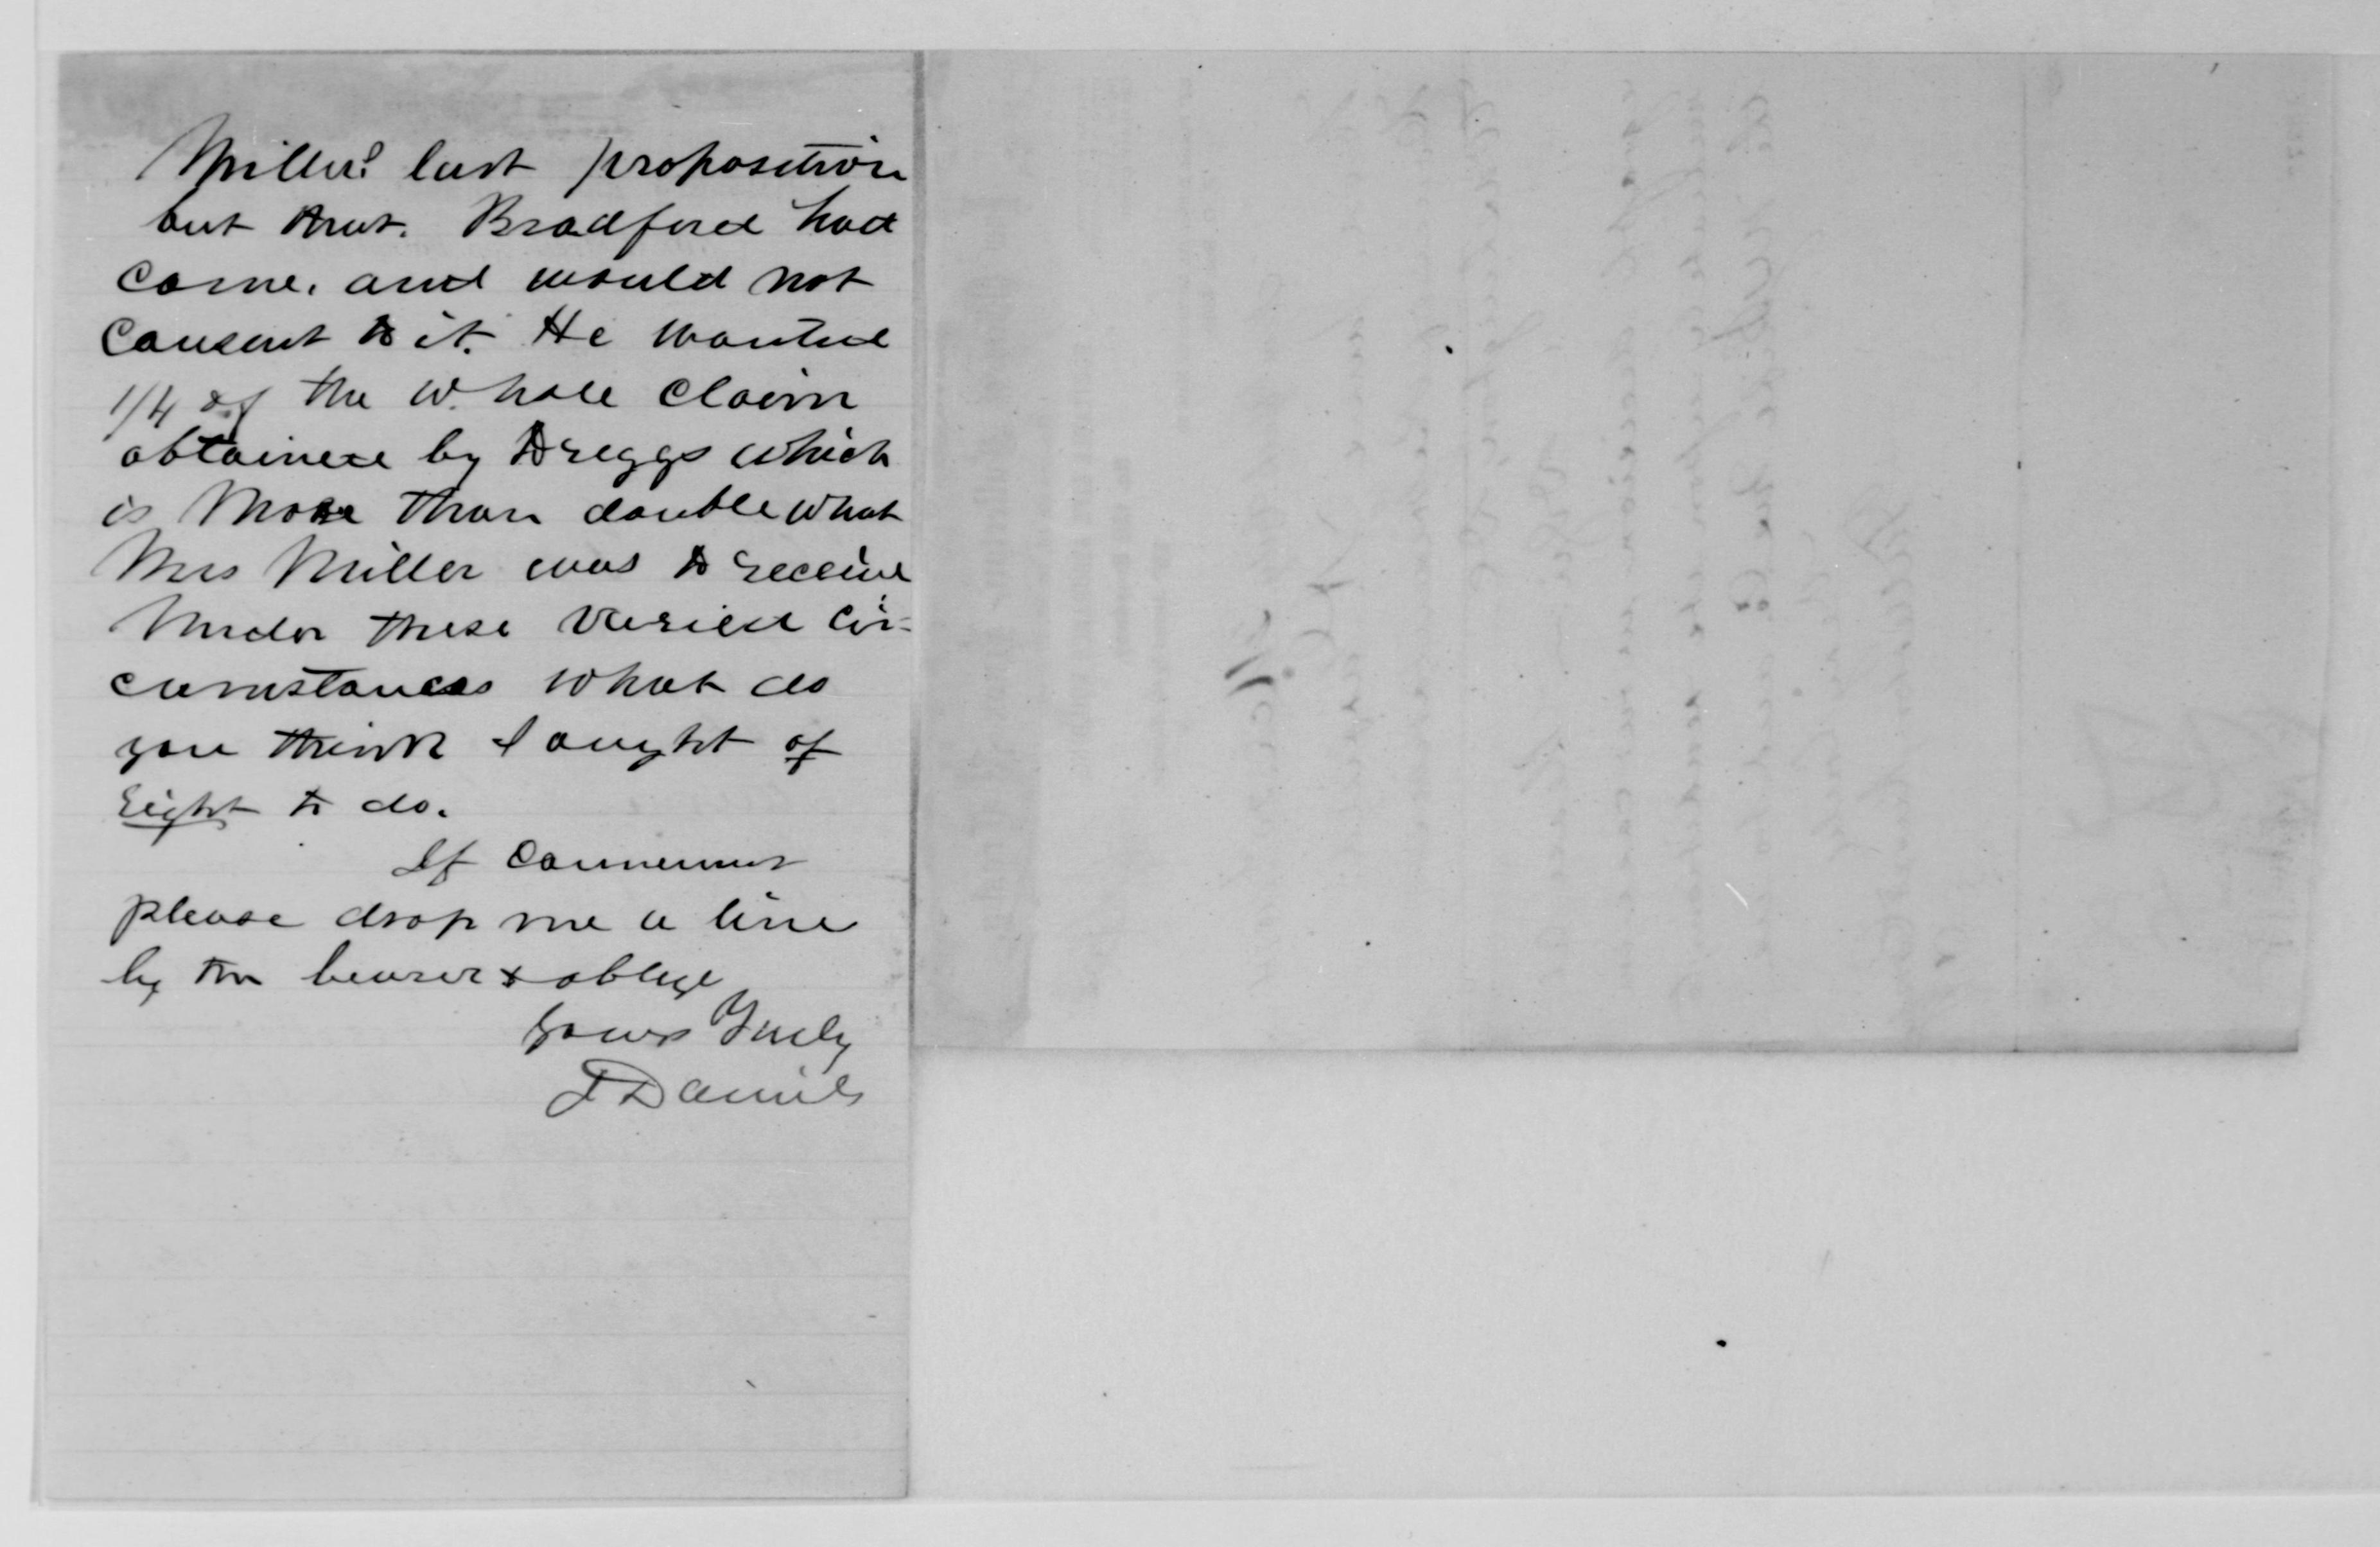 Millers last proposition
but that. Bradford had
come. and would not
consent to it. He wanted
1/4 of the whole claim
obtained by Dreggs which
is more than double what
Mrs Miller was to receive
Under these varied cir=
cumstances what do
you think I ought of
right to do.
If convenient
please drop me a line
by the bearer & oblige
Yours Truly
J Daniels